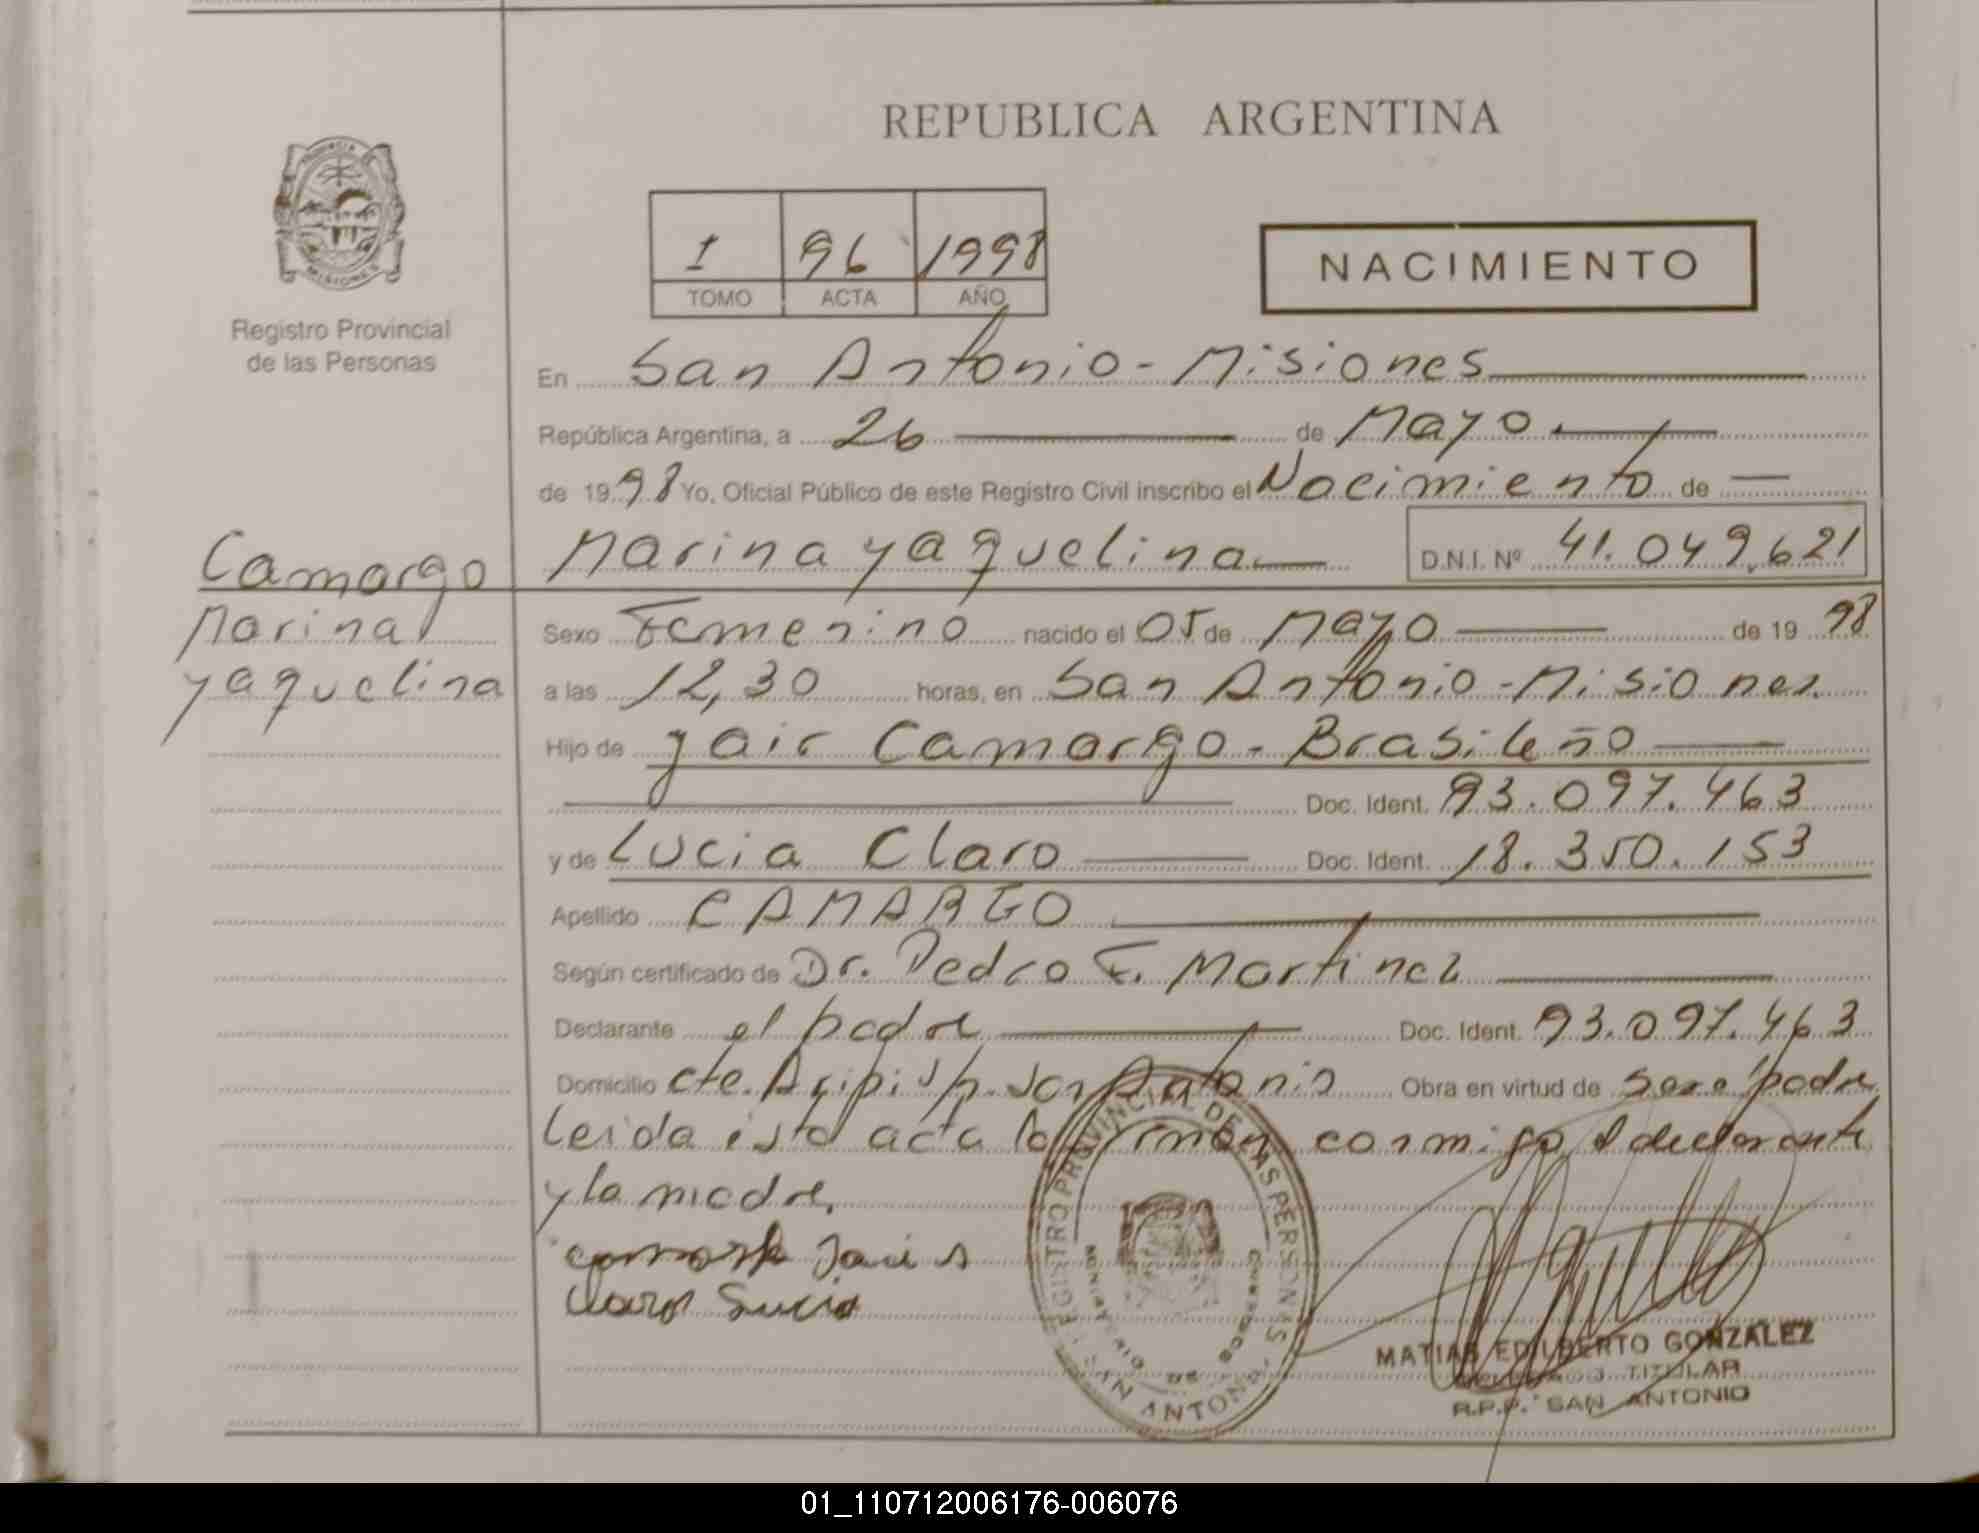 REPUBLICA ARGENTINA
PROVINCIA DE
MISIONES
Registro Provincial
de las Personas
1 96 1998
TOMO ACTA AÑO
NACIMIENTO
En San Antonio - Misiones
República Argentina, a 26 de Mayo
de 1998 Yo, Oficial Público de este Registro Civil inscribo el Nacimiento de
Marina yaquelina D.N.I. Nº 41.049.621
Camargo
Marina
yaquelina
Sexo Femenino nacido el 05 de Mayo de 19 98
a las 12,30 horas, en San Antonio - Misiones
Hijo de Jair Camargo - Brasileño
Doc. Ident. 93.097.463
y de Lucia Claro Doc. Ident. 18.350.153
Apellido CAMARGO
Según certificado de Dr. Pedro F. Martinez
Declarante el padre Doc. Ident. 93.097.463
Domicilio cte. San Antonio Obra en virtud de ser el padre
Leida esta acta la firman conmigo el declarante
y la madre.
Claro Lucia
REGISTRO PROVINCIAL DE LAS PERSONAS
MINISTERIO DE GOBIERNO
SAN ANTONIO
MATIAS EDILBERTO GONZALEZ
DELEGADO TITULAR
R.P.P. SAN ANTONIO
01_110712006176-006076